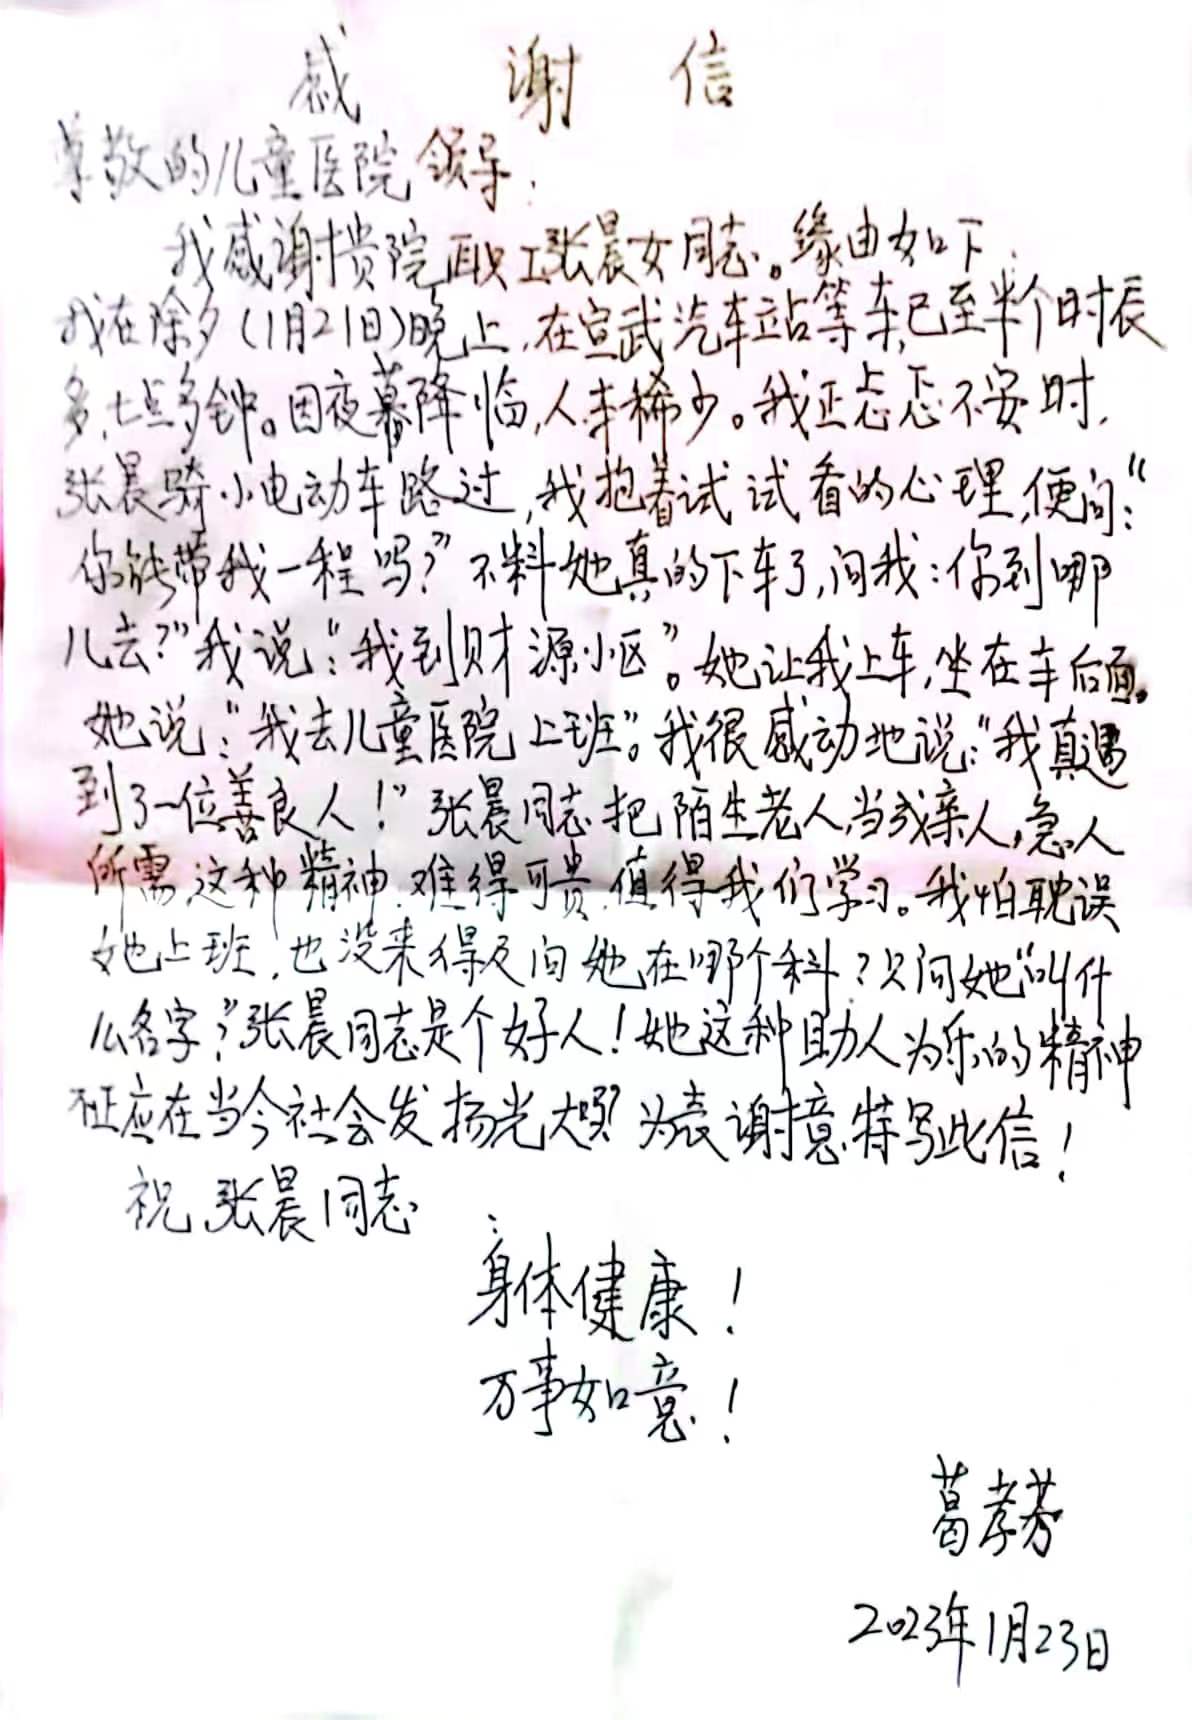 感谢信
尊敬的儿童医院领导：
我感谢贵院职工张晨女同志。缘由如下：
我在除夕(1月21日)晚上,在宣武汽车站等车,已至半个时辰
多,七点多钟。因夜幕降临,人车稀少。我正忐忑不安时,
张晨骑小电动车路过,我抱着试试看的心理,便问：“
你能带我一程吗?”不料她真的下车了,问我：你到哪
儿去?”我说：“我到财源小区”。她让我上车,坐在车后面。
她说：“我去儿童医院上班”。我很感动地说：“我真遇
到了一位善良人!”张晨同志把陌生老人,当成亲人,急人
所需,这种精神,难得可贵,值得我们学习。我怕耽误
她上班,也没来得及问她在哪个科?只问她“叫什
么名字?”张晨同志是个好人!她这种助人为乐的精神
不正应在当今社会发扬光大吗?为表谢意,特写此信!
祝张晨同志
：
身体健康!
万事如意!
葛孝芳
2023年1月23日